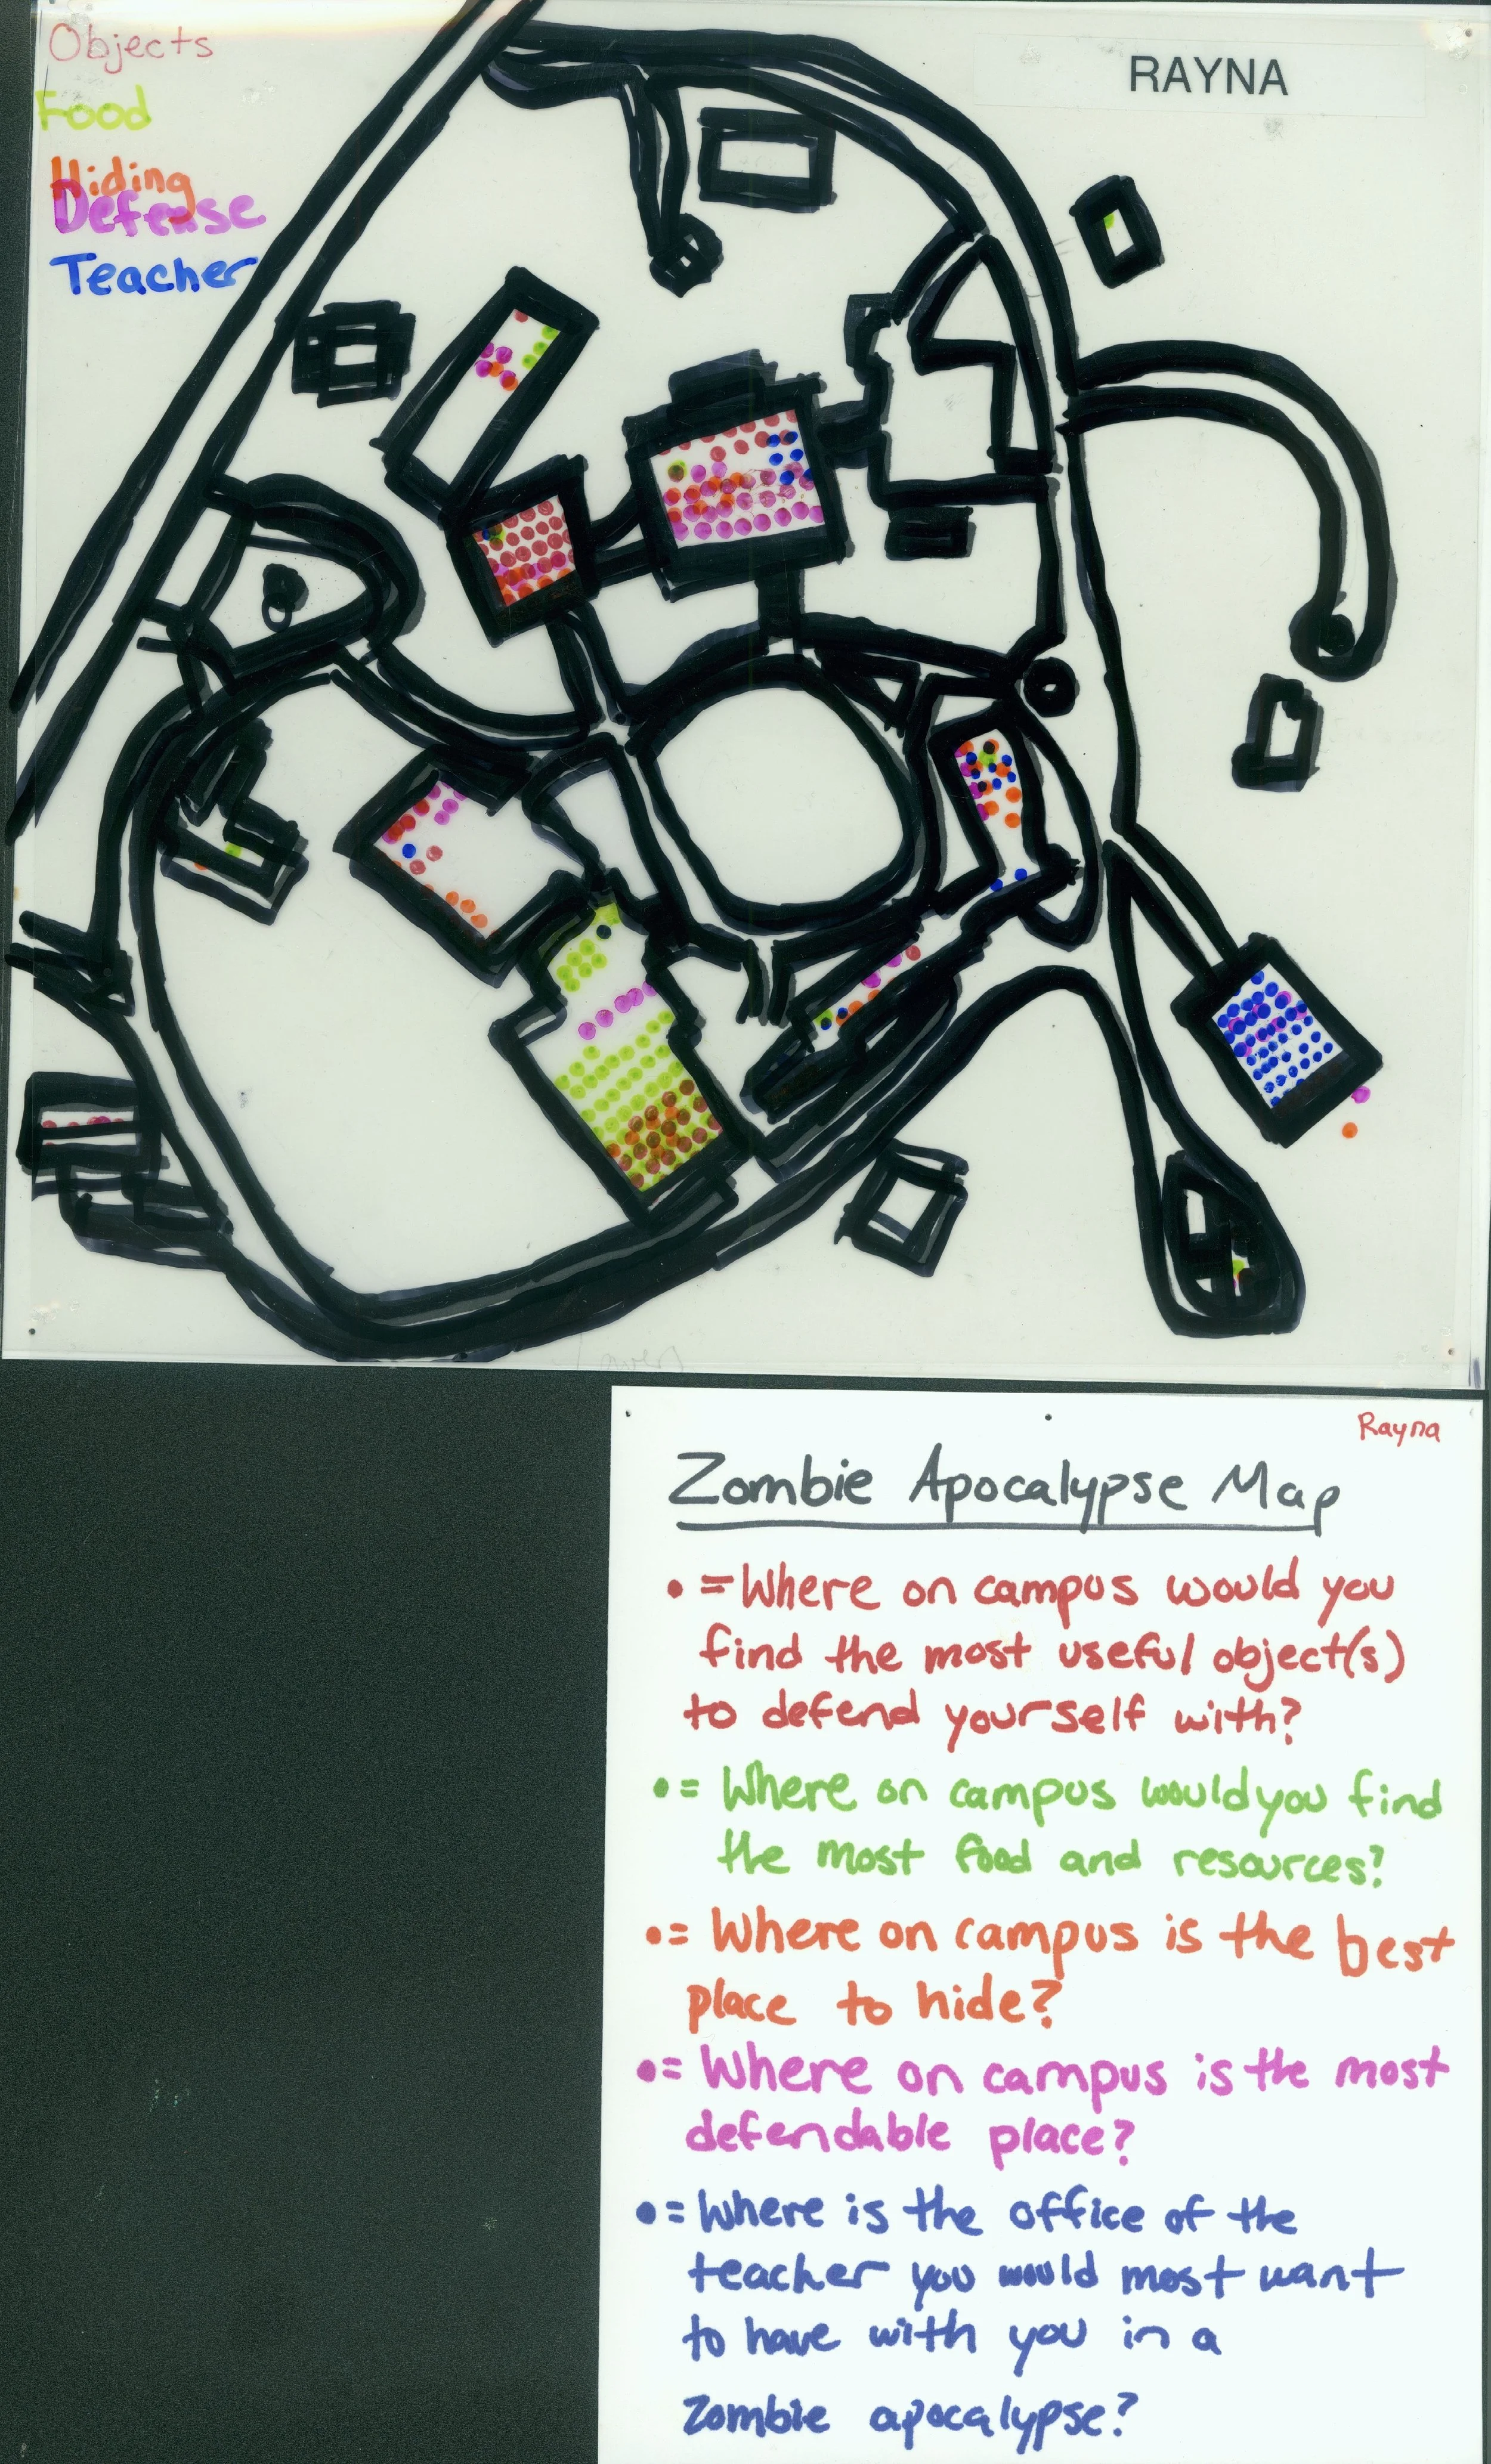 Objects
Food
Hiding
Defense
Teacher
RAYNA
Rayna
Zombie Apocalypse Map
• = Where on campus would you
find the most useful object(s)
to defend yourself with?
• = Where on campus would you find
the most food and resources?
• = Where on campus is the best
place to hide?
• = Where on campus is the most
defendable place?
• = Where is the office of the
teacher you would most want
to have with you in a
Zombie apocalypse?